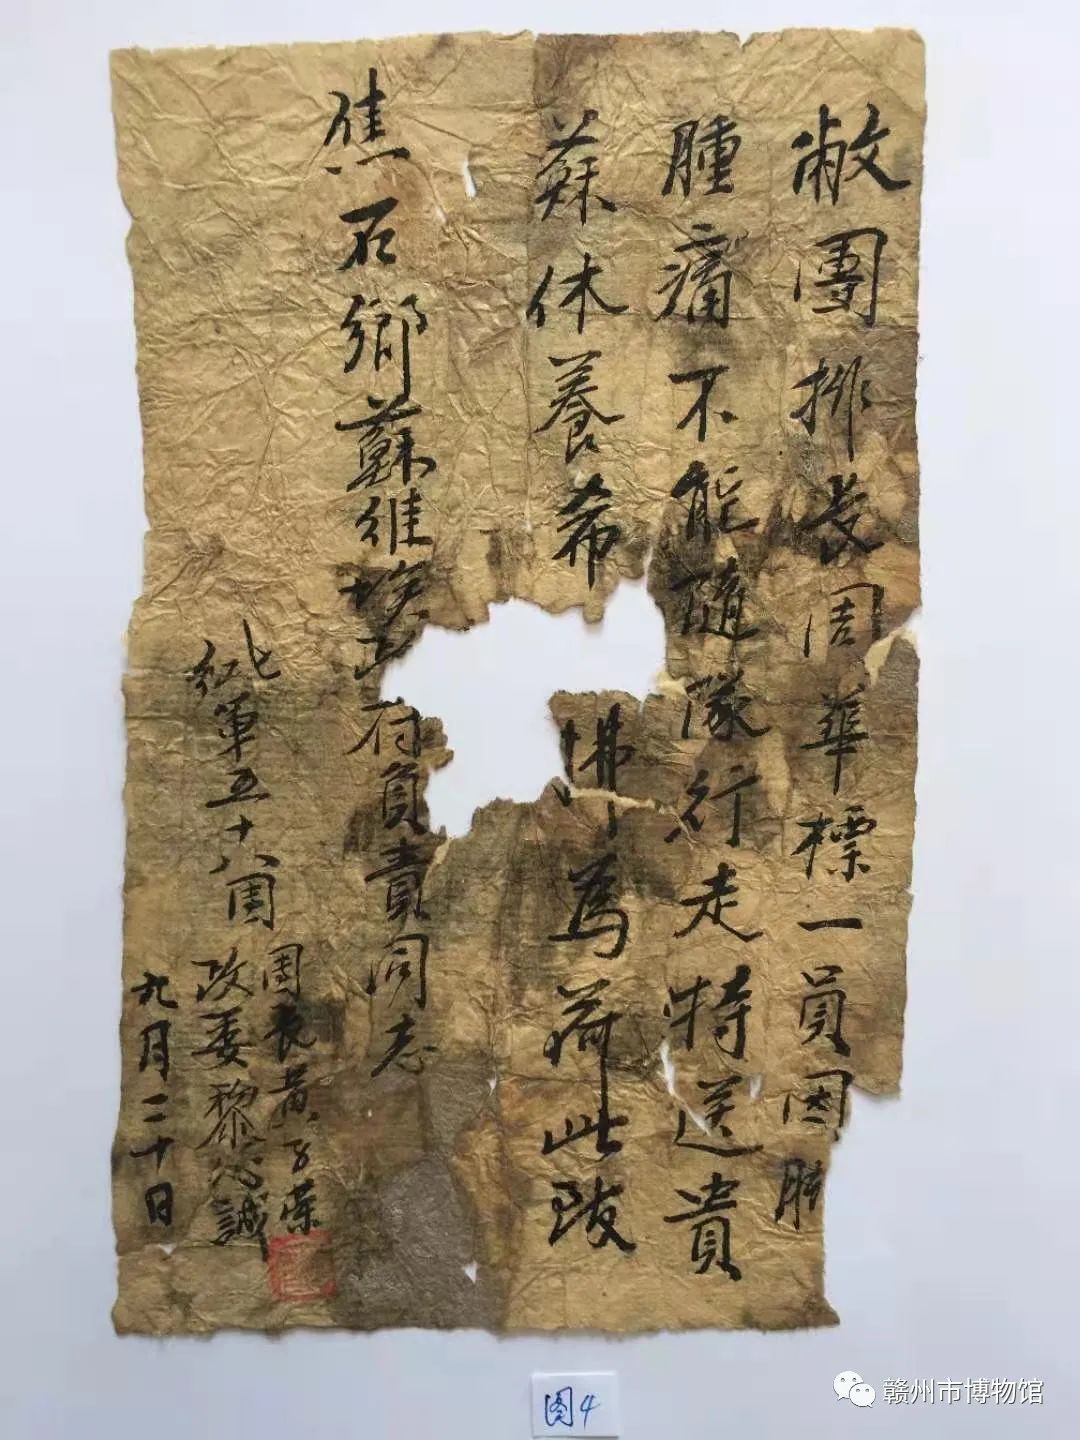 敝團排長周華標一員因脚
腫痛不能隨隊行走特送貴
蘇休養希
怫為荷此致
焦石鄉蘇維埃政府負責同志
紅軍五十八团
團長黄子荣
政委黎心誠
九月二十日
图4
赣州市博物馆